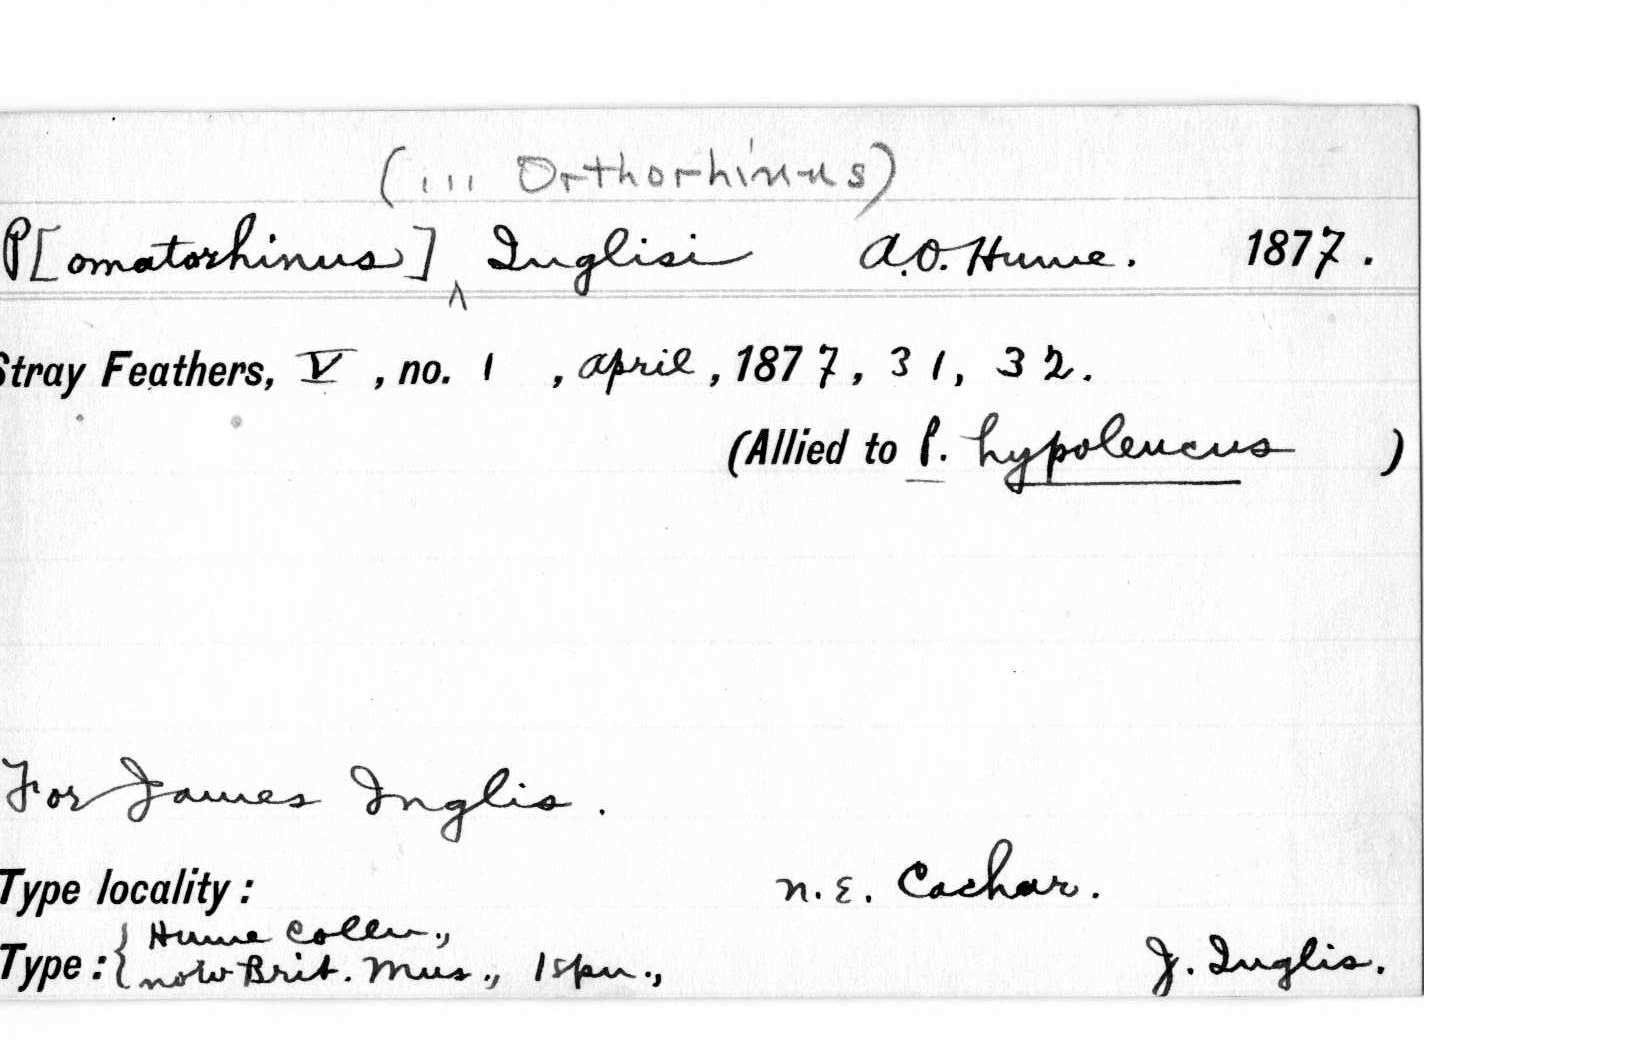 (... Orthorhinus)
P[omatorhinus] ^ Inglisi A.O. Hume. 1877.
Stray Feathers, V, no. 1, April, 1877, 31, 32.
(Allied to P. hypoleucus )
For James Inglis.
Type locality: N.E. Cachar.
Type: { Hume Colln.,
now Brit. Mus., 1 spn., J. Inglis.